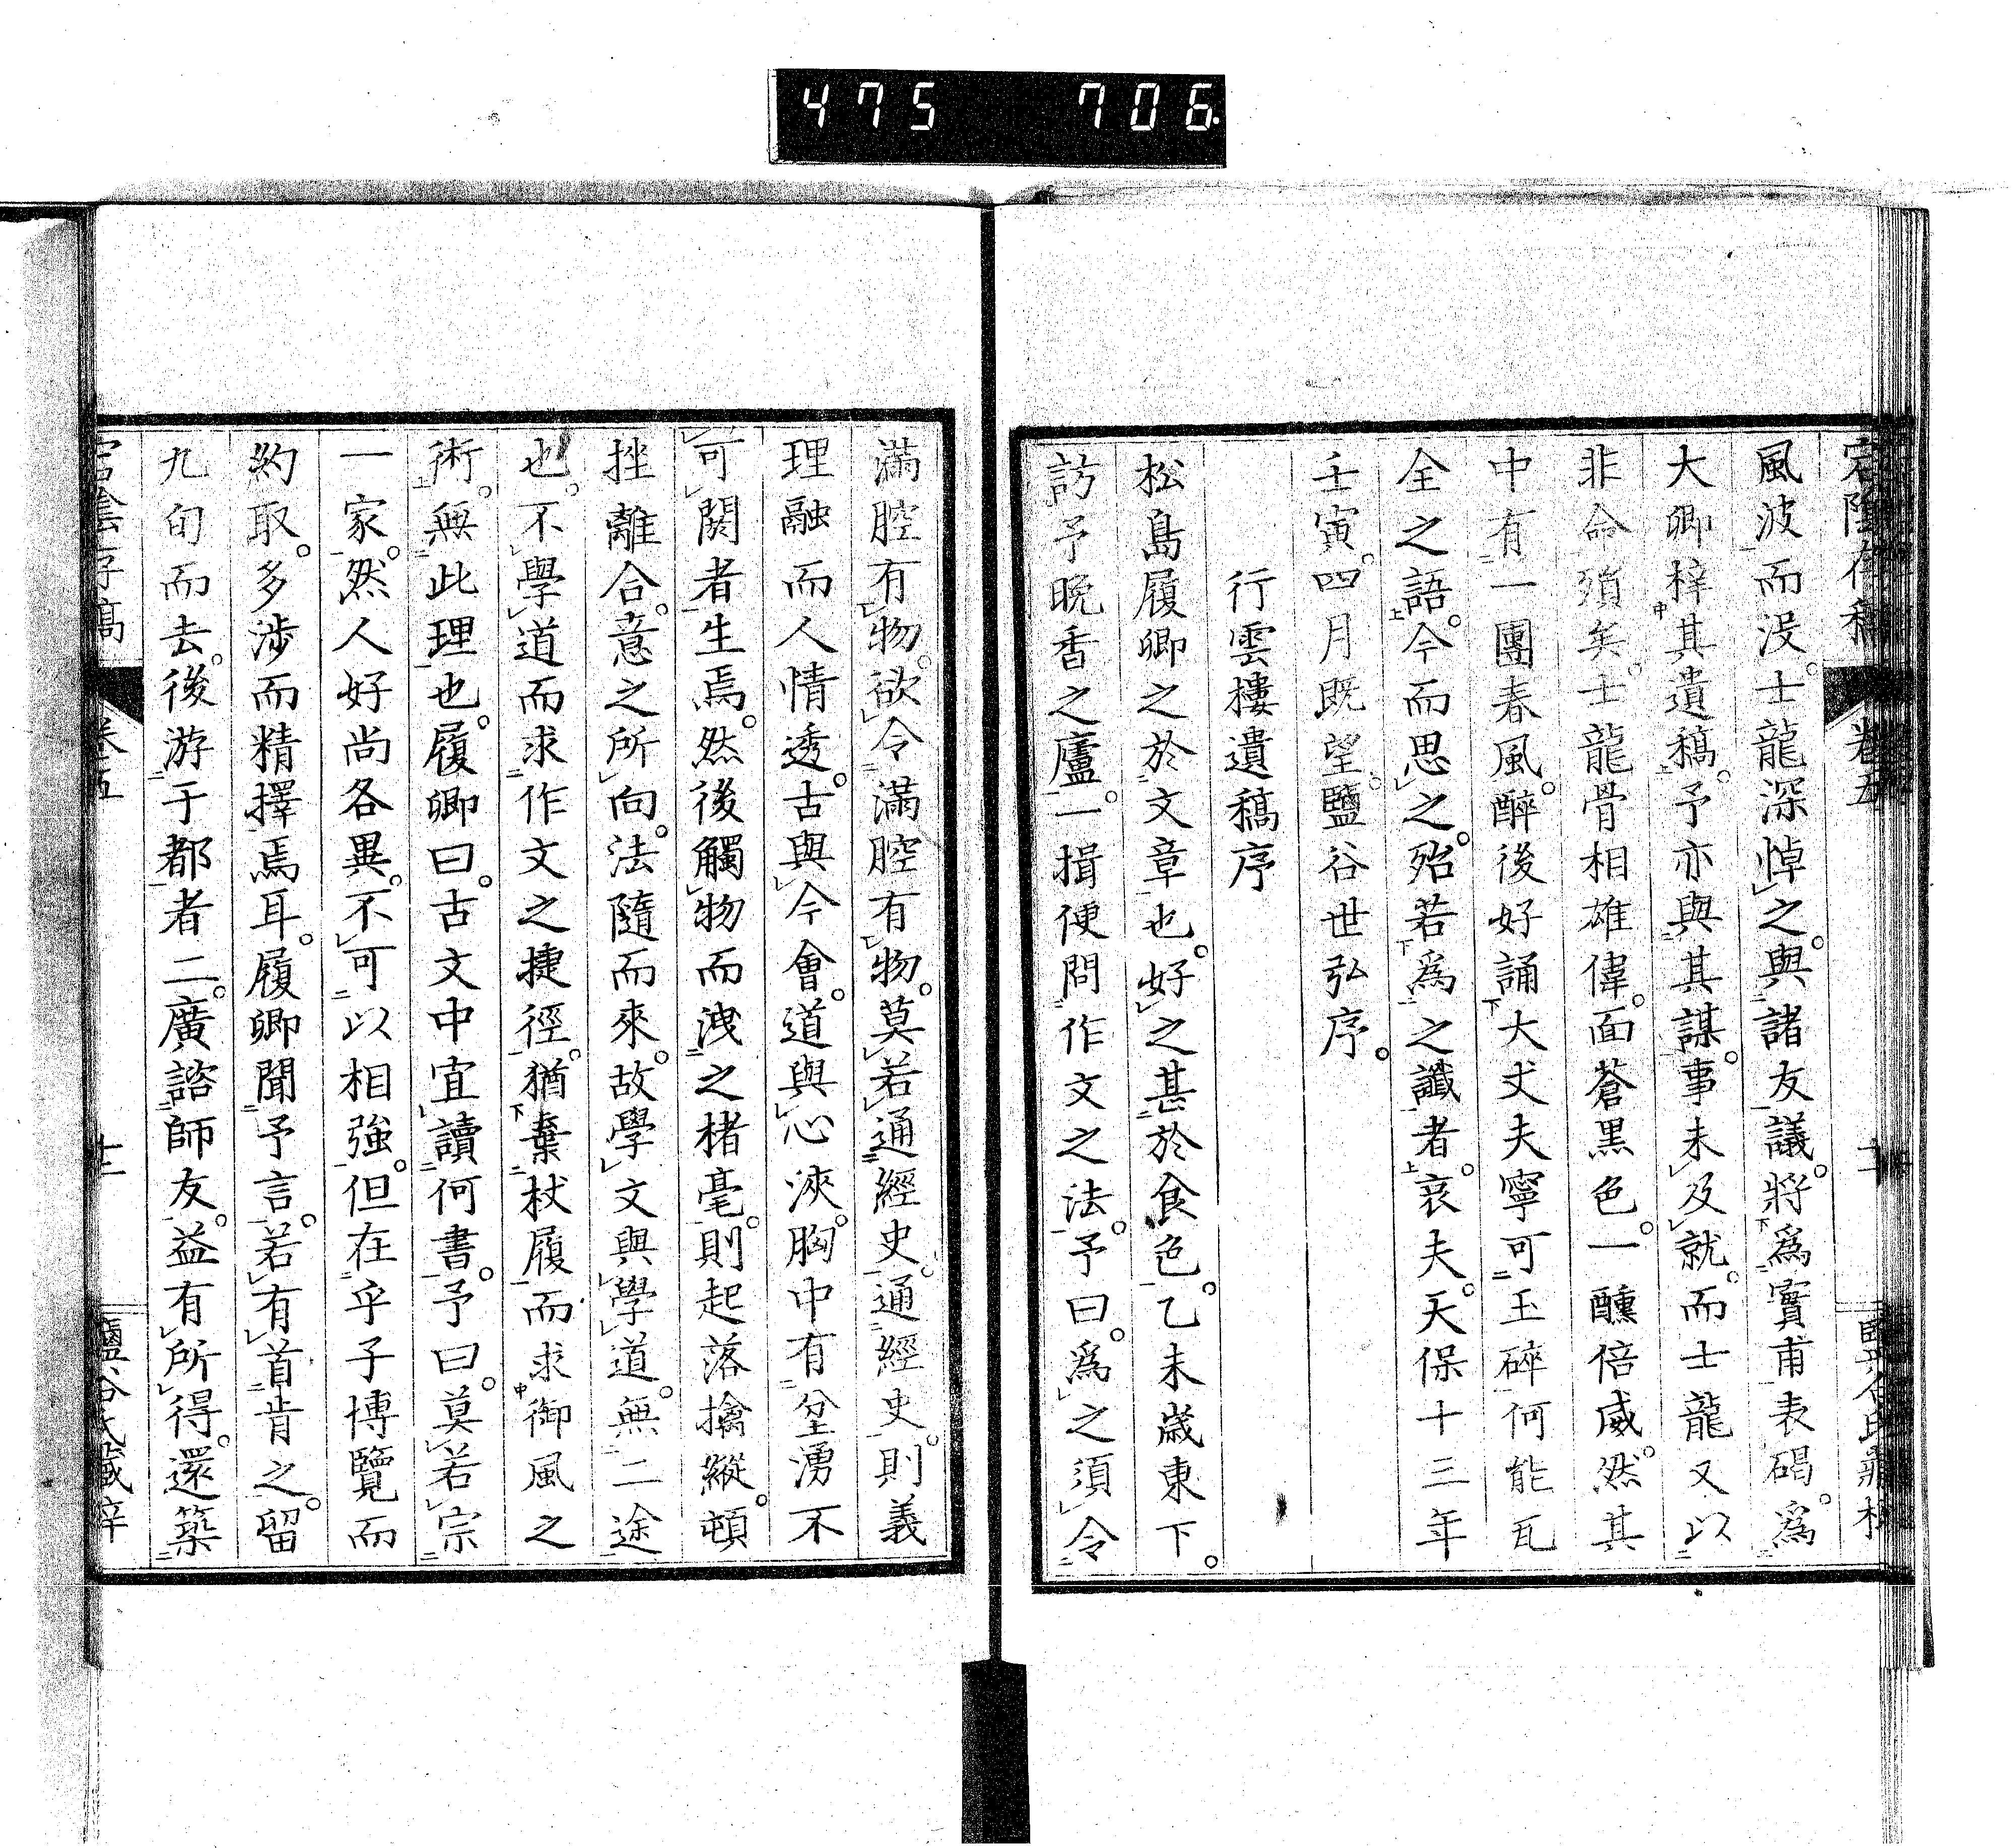 475 706
風波而没。士龍深悼之。與諸友議。將爲實甫表碣。爲
大卿梓其遺稿。予亦與其謀。事未及就。而士龍又以
非命殞矣。士龍骨相雄偉。面蒼黑色。一醺倍威。然其
中有一團春風。醉後好誦大丈夫寧可玉碎何能瓦
全之語。今而思之。殆若爲之讖者。哀夫。天保十三年
壬寅。四月既望。鹽谷世弘序。
行雲樓遺稿序
松島履卿之於文章也。好之甚於食色。乙未歳東下。
訪予晩香之廬。一揖便問作文之法。予曰。爲之須令
滿腔有物。欲令滿腔有物。莫若通經史。通經史。則義
理融而人情透。古與今會。道與心浹。胸中有坌湧不
可閼者生焉。然後觸物而洩之楮毫。則起落擒縱。頓
挫離合。意之所向。法隨而來。故學文與學道。無二途
也。不學道而求作文之捷徑。猶棄杖履而求御風之
術。無此理也。履卿曰。古文中宜讀何書。予曰。莫若宗
一家。然人好尚各異。不可以相強。但在乎子博覽而
約取。多渉而精擇焉耳。履卿聞予言。若有首肯之。留
九旬而去。後游于都者二。廣諮師友。益有所得。還築
宕陰存稿 卷五 十二 鹽谷氏藏梓